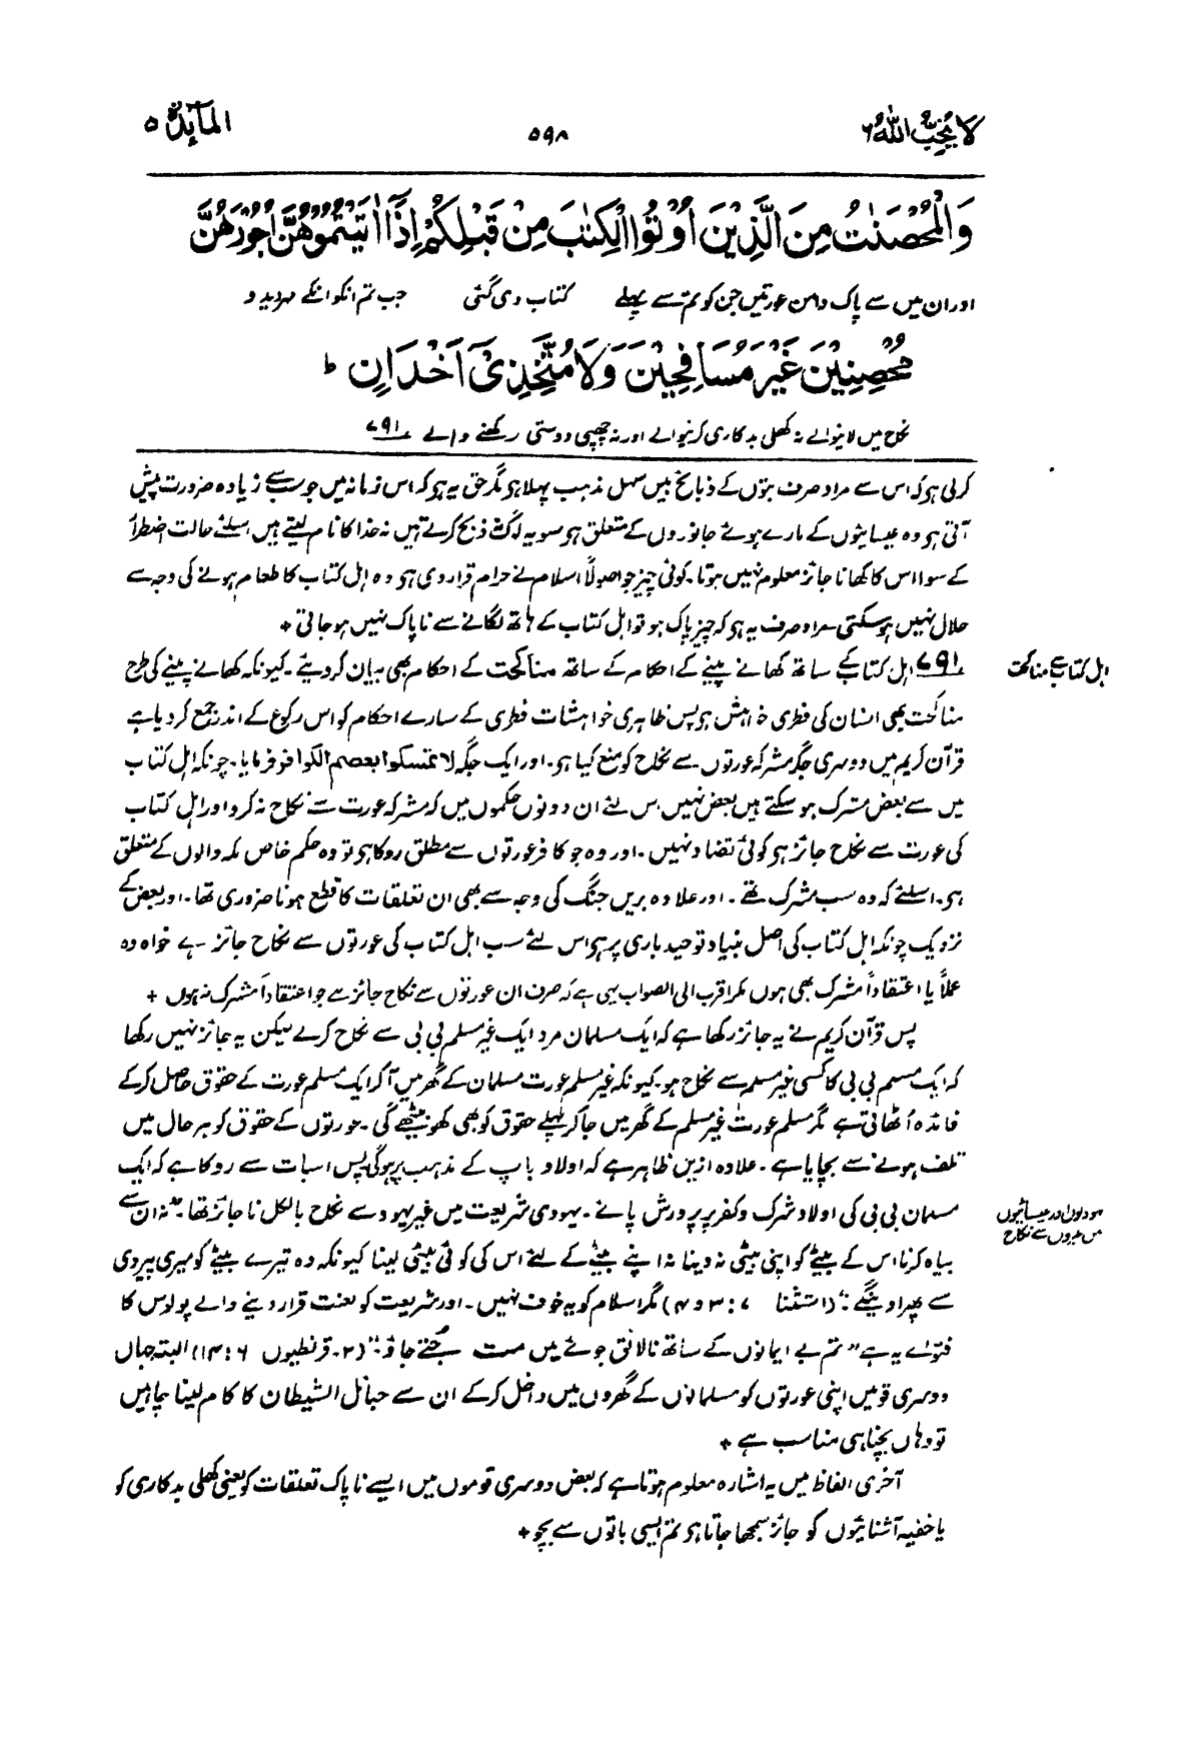 لا یحب اللہ ۶
۵۹۸
المآئدۃ ۵
وَالْمُحْصَنٰتُ مِنَ الَّذِیْنَ اُوْتُوا الْکِتٰبَ مِنْ قَبْلِکُمْ اِذَآ اٰتَیْتُمُوْهُنَّ اُجُوْرَهُنَّ
اور ان میں سے پاک دامن عورتیں جن کو تم سے پہلے کتاب دی گئی جب تم انکو انکے مہر دیدو
مُحْصِنِیْنَ غَیْرَ مُسَافِحِیْنَ وَلَا مُتَّخِذِیْٓ اَخْدَانٍ ط
نکاح میں لانیوالے نہ کھلی بدکاری کرنیوالے اور نہ چھپی دوستی رکھنے والے ۷۹۱
کرلی ہو کہ اس سے مراد صرف بتوں کے ذبائح ہیں سہل مذہب پہلا ہو مگر حق یہ ہو کہ اس زمانہ میں جو سب سے زیادہ ضرورت پیش
آتی ہو وہ عیسائیوں کے مارے ہوئے جانوروں کے متعلق ہو سو یہ لوگ نہ ذبح کرتے ہیں نہ خدا کا نام لیتے ہیں اسلئے حالت اضطرار
کے سوا اس کا کھانا جائز معلوم نہیں ہوتا۔ کوئی چیز جو اصولاً اسلام نے حرام قرار دی ہو وہ اہل کتاب کا طعام ہونے کی وجہ سے
حلال نہیں ہوسکتی۔ مراد صرف یہ ہو کہ چیز پاک ہو تو اہل کتاب کے ہاتھ لگانے سے ناپاک نہیں ہوجاتی +
اہل کتاب سے مناکحت
۷۹۱ اہل کتاب کے ساتھ کھانے پینے کے احکام کے ساتھ مناکحت کے احکام بھی بیان کردیئے۔ کیونکہ کھانے پینے کی طرح
مناکحت بھی انسان کی فطری خواہش ہو پس ظاہری خواہشات فطری کے سارے احکام کو اس رکوع کے اندر جمع کردیا ہے
قرآن کریم میں دوسری جگہ مشرکہ عورتوں سے نکاح کو منع کیا ہو۔ اور ایک جگہ لا تمسکوا بعصم الکوافر فرمایا۔ چونکہ اہل کتاب
میں سے بعض مشرک ہوسکتے ہیں بعض نہیں اس لئے ان دونوں حکموں میں کہ مشرکہ عورت سے نکاح نہ کرو اور اہل کتاب
کی عورت سے نکاح جائز ہو کوئی تضاد نہیں۔ اور وہ جو کافر عورتوں سے مطلق روکا ہو تو وہ حکم خاص مکہ والوں کے متعلق
ہو۔ اسلئے کہ وہ سب مشرک تھے۔ اور علاوہ بریں جنگ کی وجہ سے بھی ان تعلقات کا قطع ہونا ضروری تھا۔ اور بعض کے
نزدیک چونکہ اہل کتاب کی اصل بنیاد توحید باری پر ہو اس لئے سب اہل کتاب کی عورتوں سے نکاح جائز ہے خواہ وہ
عملاً یا اعتقاداً مشرک بھی ہوں مگر اقرب الی الصواب یہی ہے کہ صرف ان عورتوں سے نکاح جائز ہے جو اعتقاداً مشرک نہ ہوں +
پس قرآن کریم نے یہ جائز رکھا ہے کہ ایک مسلمان مرد ایک غیر مسلم بی بی سے نکاح کرے لیکن یہ جائز نہیں رکھا
کہ ایک مسلم بی بی کا کسی غیر مسلم سے نکاح ہو۔ کیونکہ غیر مسلم عورت مسلمان کے گھر میں آکر ایک مسلم عورت کے حقوق حاصل کرکے
فائدہ اُٹھاتی ہے مگر مسلم عورت غیر مسلم کے گھر میں جاکر پہلے حقوق کو بھی کھو بیٹھے گی۔ عورتوں کے حقوق کو ہر حال میں
تلف ہونے سے بچایا ہے۔ علاوہ ازیں ظاہر ہے کہ اولاد باپ کے مذہب پر ہوگی پس اسبات سے روکا ہے کہ ایک
یہودیوں اور عیسائیوں
میں غیروں سے نکاح
مسلمان بی بی کی اولاد شرک و کفر پر پرورش پائے۔ یہودی شریعت میں غیر یہود سے نکاح بالکل ناجائز تھا۔ "نہ ان سے
بیاہ کرنا اس کے بیٹے کو اپنی بیٹی نہ دینا نہ اپنے بیٹے کے لئے اس کی کوئی بیٹی لینا کیونکہ وہ تیرے بیٹے کو میری پیروی
سے پھرا دینگے" (استثنا ۷ : ۳ و ۴) مگر اسلام کو یہ خوف نہیں۔ اور شریعت کو لعنت قرار دینے والے پولوس کا
فتوےٰ یہ ہے "تم بے ایمانوں کے ساتھ نالائق جوئے میں مت جُتے جاؤ" (۲۔ قرنطیوں ۶ : ۱۴) البتہ جہاں
دوسری قومیں اپنی عورتوں کو مسلمانوں کے گھروں میں داخل کرکے ان سے حبائل الشیطان کا کام لینا چاہیں
تو وہاں بچنا ہی مناسب ہے +
آخری الفاظ میں یہ اشارہ معلوم ہوتا ہے کہ بعض دوسری قوموں میں ایسے ناپاک تعلقات کو یعنی کھلی بدکاری کو
یا خفیہ آشنائیوں کو جائز سمجھا جاتا ہو تم ایسی باتوں سے بچو +